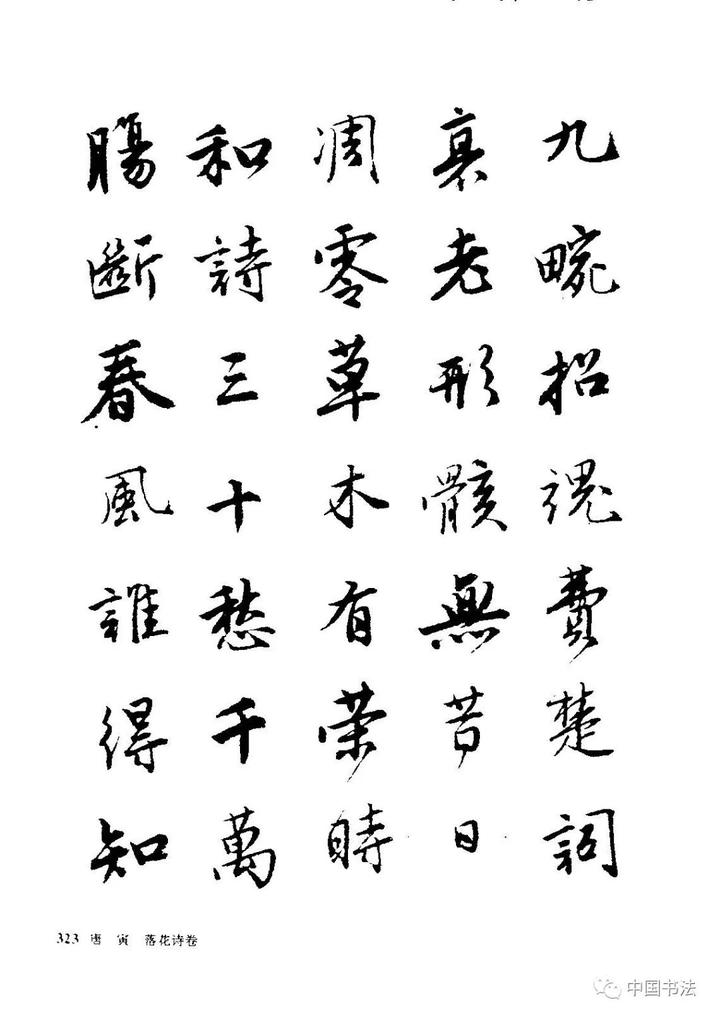 九畹招魂費楚詞
衰老形骸無昔日
凋零草木有榮時
和詩三十愁千萬
腸斷春風誰得知
323 唐 寅 落花诗卷
中国书法